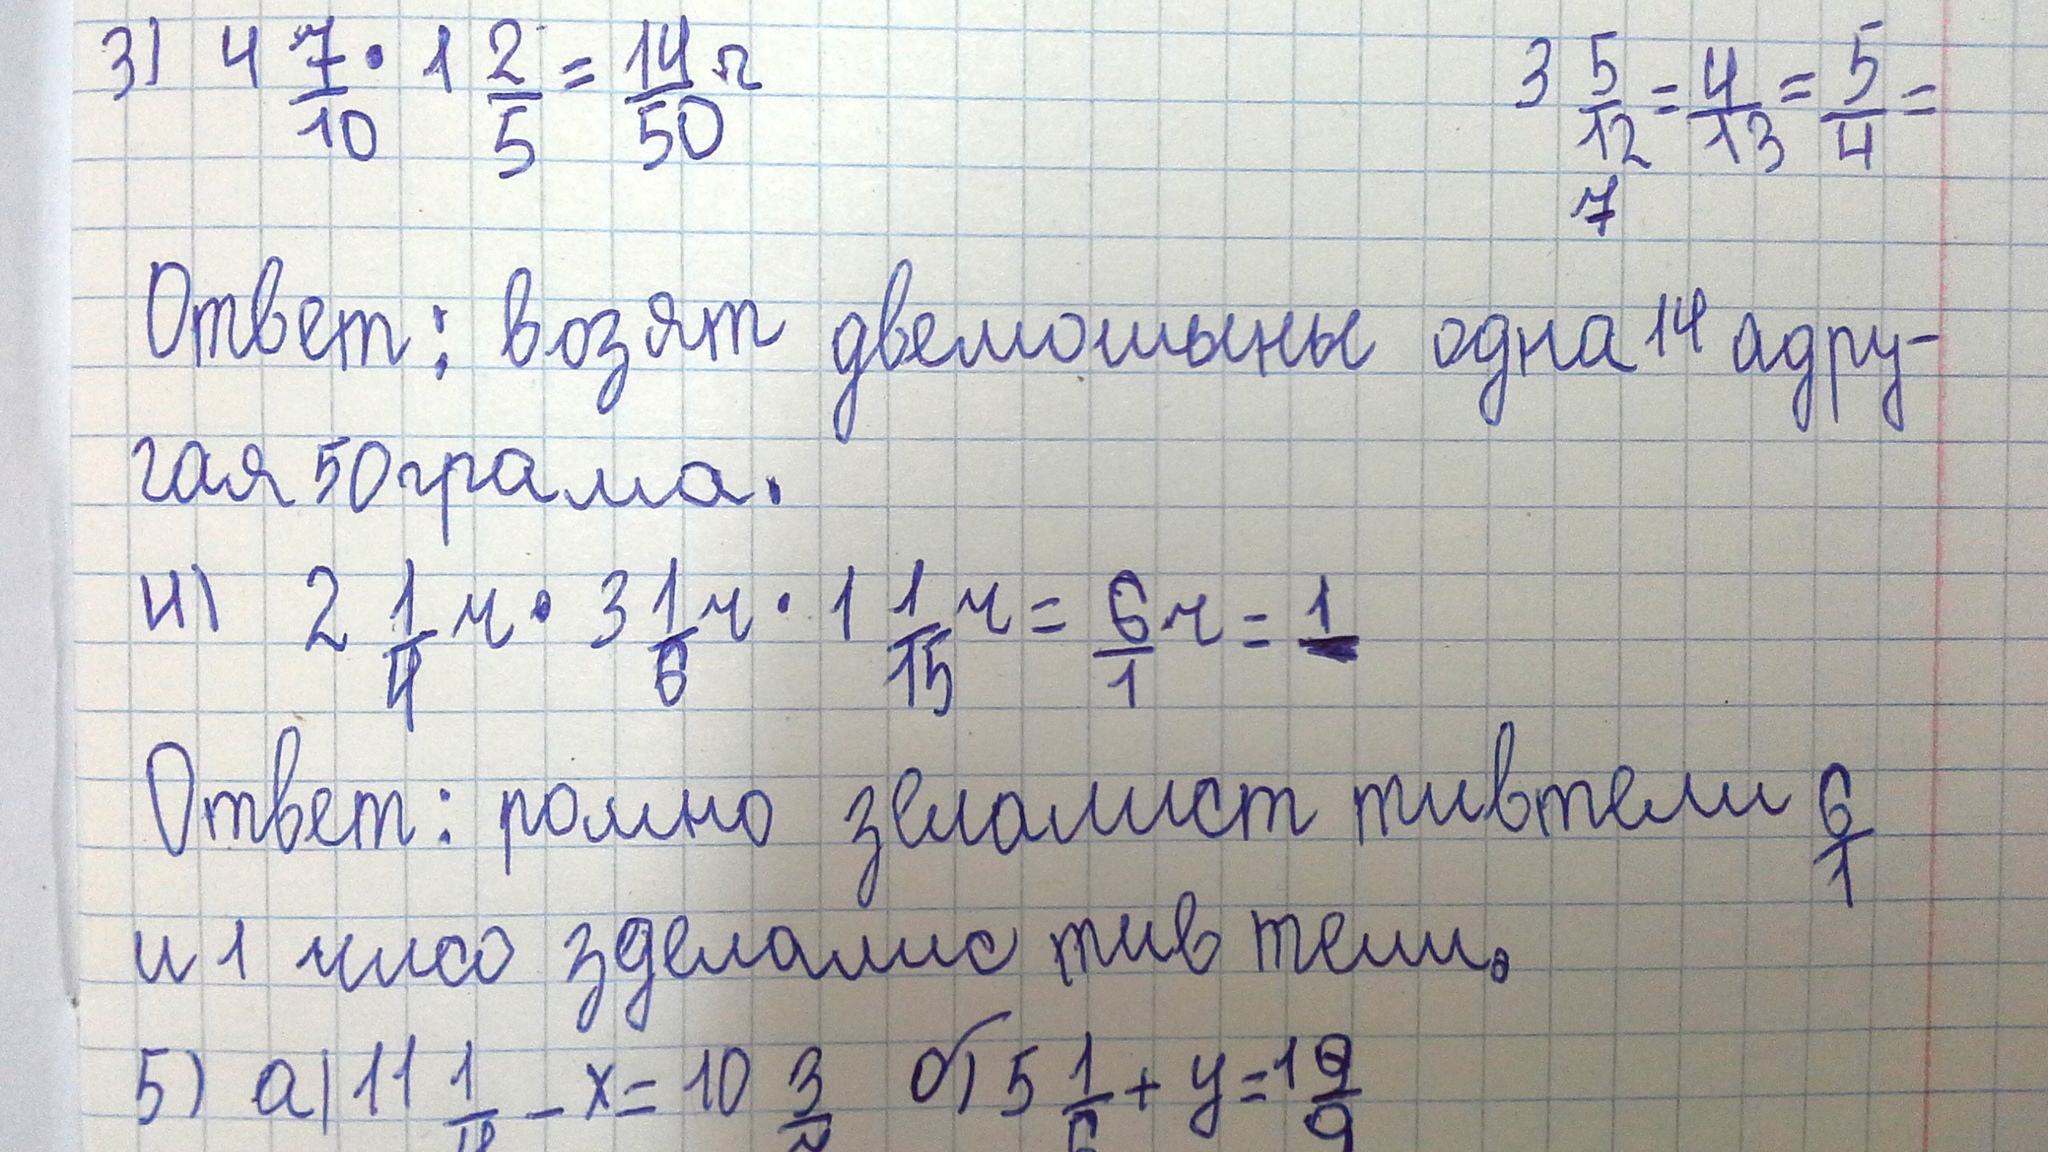 3) 4 7/10 · 1 2/5 = 14/50 г
3 5/12 = 4/13 = 5/4 =
7
Ответ: возят двемошыны одна 14 адру-
гая 50 грама.
4) 2 1/4 ч · 3 1/6 ч · 1 1/15 ч = 6/1 ч = 1
Ответ: 6/1
и 1 зделалис тив тели.
5) а) 11 1/ - x = 10 3/ б) 5 1/6 + y = 19/9